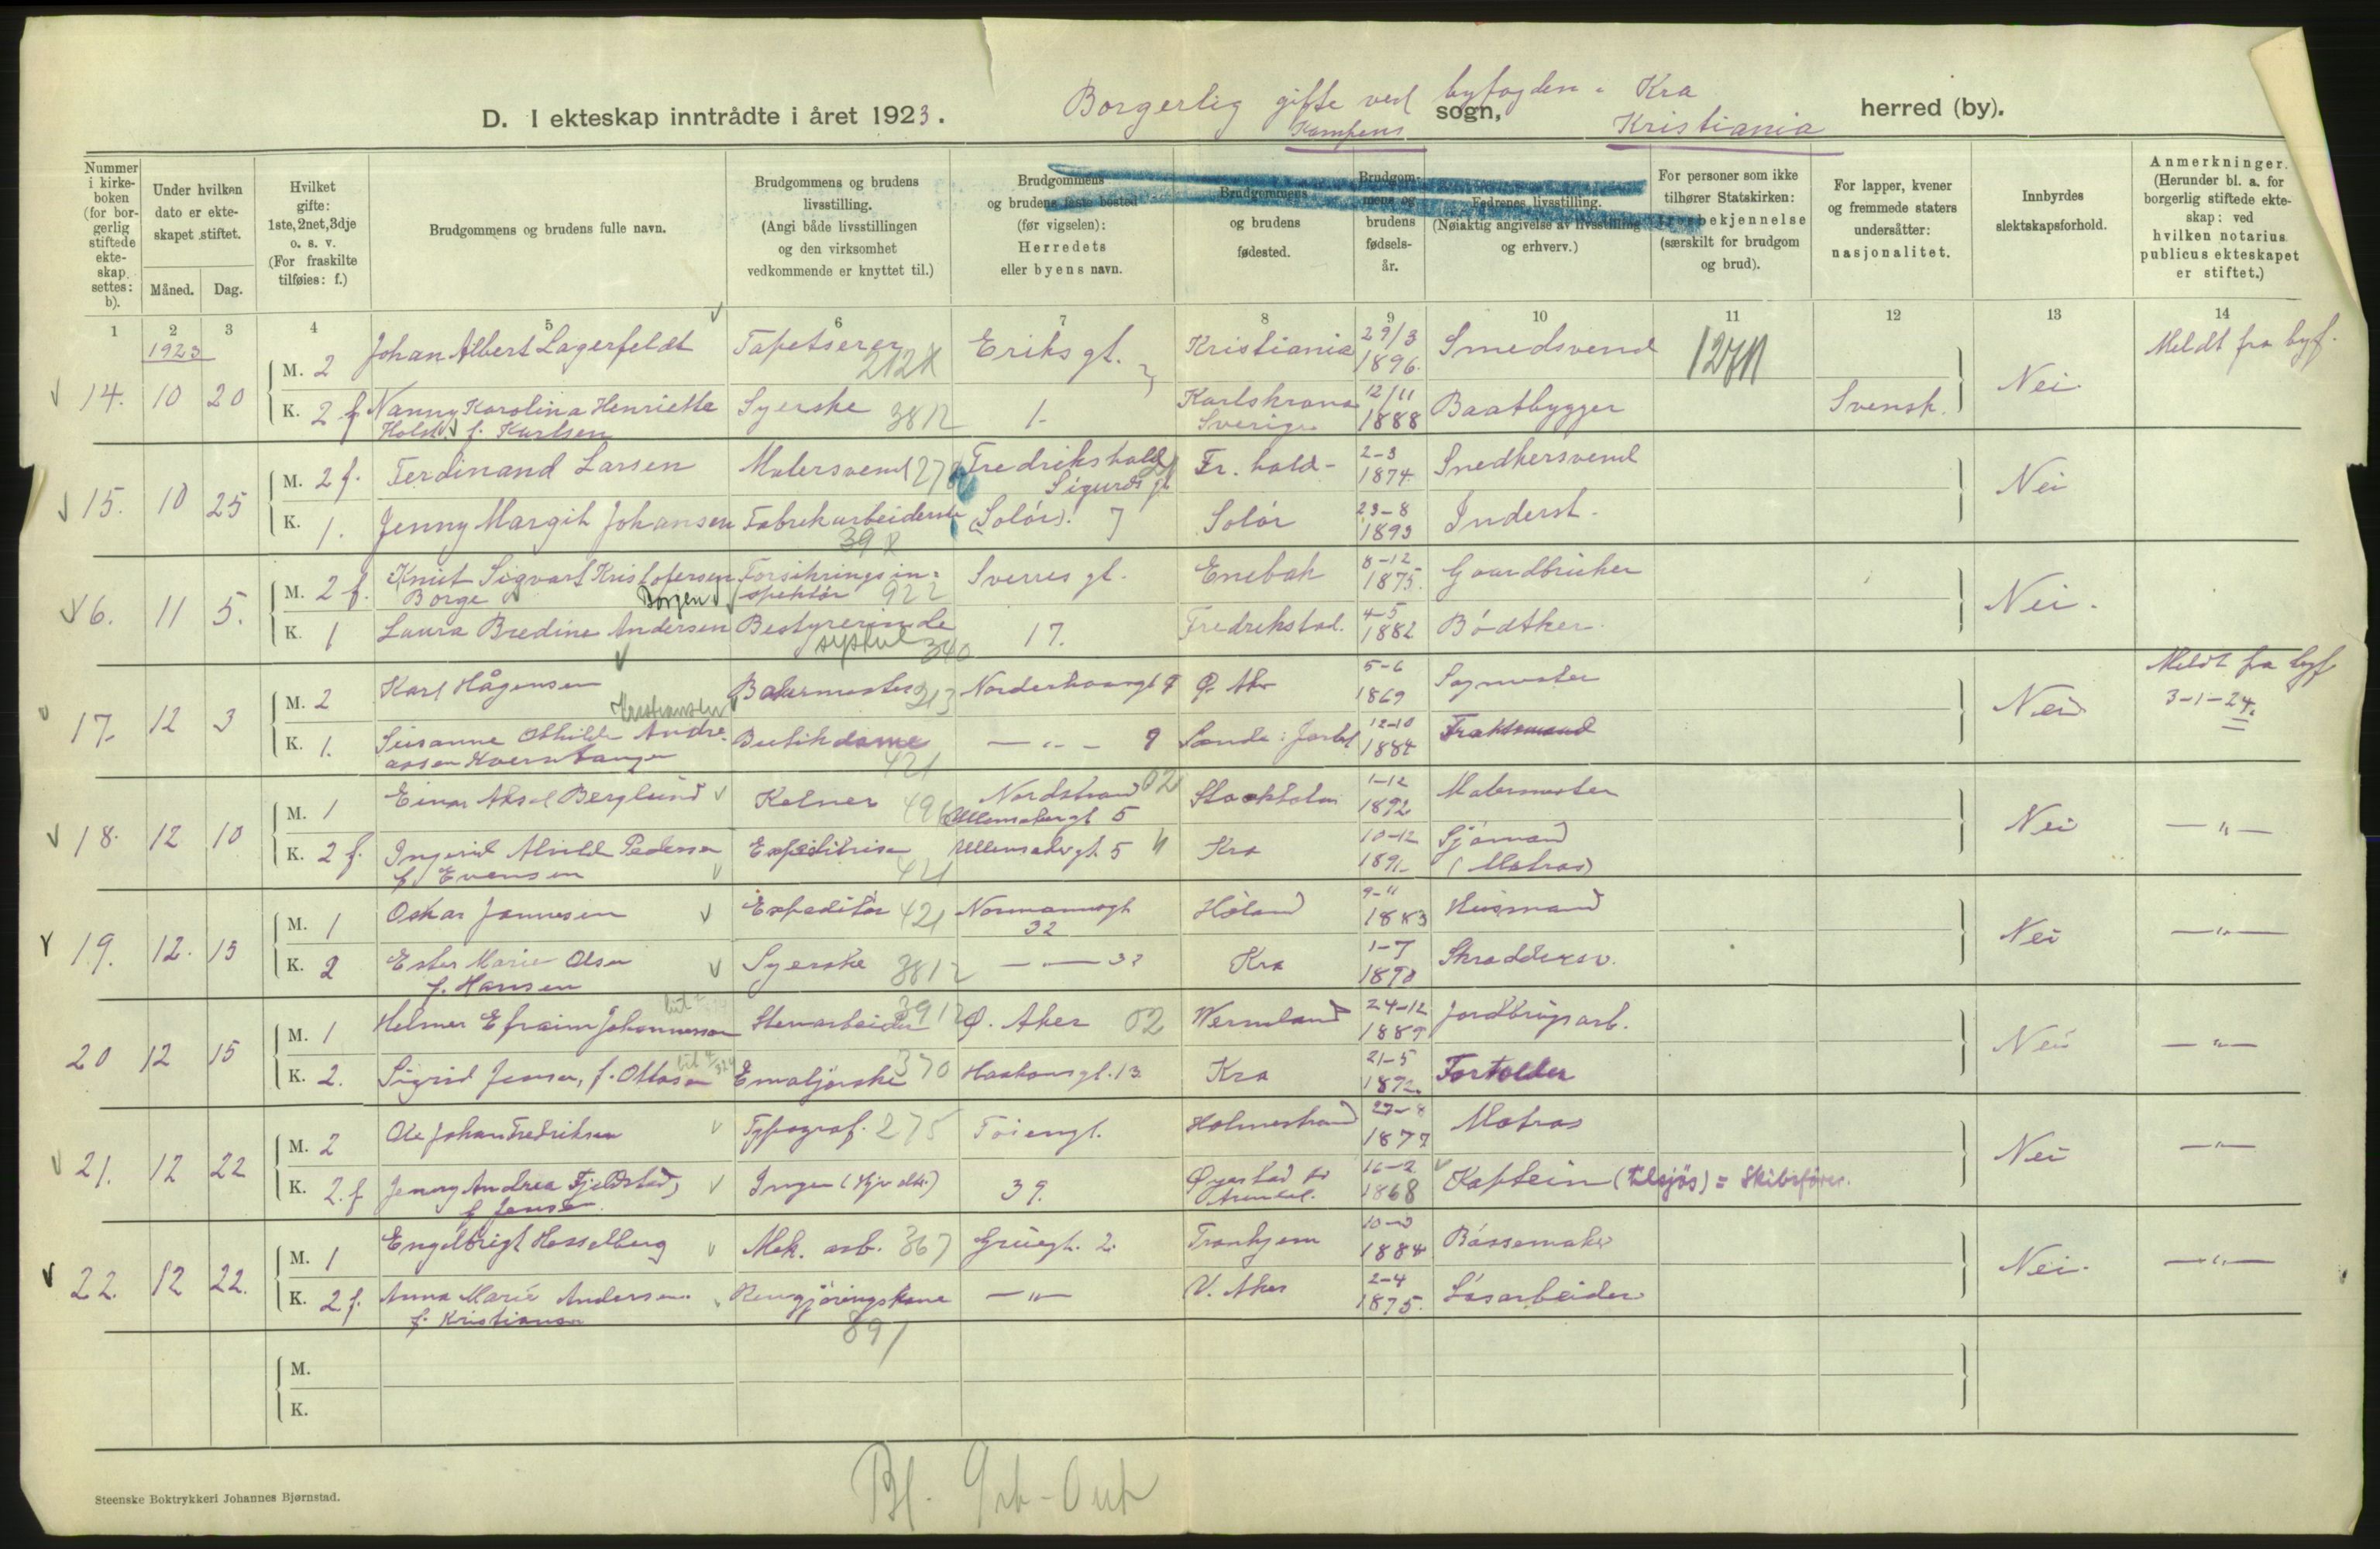 Borgerlig gifte ved byfogden i Kra
D. I ekteskap inntrådte i året 1923. Kampens sogn, Kristiania herred (by).
Nummer i kirkeboken (for borgerlig stiftede ekteskap settes: b).
Under hvilken dato er ekteskapet stiftet.
Måned. Dag.
Hvilket gifte: 1ste, 2net, 3dje o. s. v. (For fraskilte tilføies: f.)
Brudgommens og brudens fulle navn.
Brudgommens og brudens livsstilling. (Angi både livsstillingen og den virksomhet vedkommende er knyttet til.)
Brudgommens og brudens faste bosted (før vigselen): Herredets eller byens navn.
Brudgommens og brudens fødested.
Brudgommens og brudens fødselsår.
Fedrenes livsstilling. (Nøiaktig angivelse av livsstilling og erhverv.)
For personer som ikke tilhører Statskirken: trosbekjennelse (særskilt for brudgom og brud).
For lapper, kvener og fremmede staters undersåtter: nasjonalitet.
Innbyrdes slektskapsforhold.
Anmerkninger. (Herunder bl. a. for borgerlig stiftede ekteskap: ved hvilken notarius publicus ekteskapet er stiftet.)
1 2 3 4 5 6 7 8 9 10 11 12 13 14
1923
14. 10 20 M. 2 Johan Albert Lagerfeldt Tapetserer Eriks gt. Kristiania 29/3 1896. Smedsvend Nei. Meldt fra byf.
K. 2 f Nanny Karolina Henriette Holst f. Karlsen Syerske 1. Karlskrona Sverige 12/11 1888 Baatbygger Svensk.
15. 10 25 M. 2 f. Ferdinand Larsen Malersvend Fredrikshald Sigurds gt Fr. hald 2-3 1874. Snedkersvend Nei
K. 1. Jenny Margit Johansen Fabrikarbeiderske (Solór). 7 Solór 23-8 1893 Inderst.
16. 11 5. M. 2 f. Knut Sigvart Kristofersen Borge Borgen Forsikringsinspektör 922 Sverres gt. Enebak 8-12 1875. Gaardbruker Nei.
K. 1 Laura Bredine Andersen Bestyrerinde systue 340 17. Fredrikstad. 4-5 1882 Bódtker.
17. 12 3 M. 2 Karl Hågensen 313 Norderhovsgt 9 Ø. Aker 5-6 1869 Sagmester Nei Meldt fra byf 3-1-24.
K. 1. Susanne Othilde Andreassen Kverntangen Butikdame 421 — " — 9 Sande i Jarlsb 12-10 1884 Fraktemand
18. 12 10 M. 1 Einar Aksel Berglund Kelner 496 Nordstrand 02 Ullensakergt 5 Stockholm 1-12 1892 Malermester Nei — " —
K. 2 f. Ingerid Alvilde Pedersen f. Evensen Expeditrise 421 Ullensakergt. 5 Kra 10-12 1891 Sjömand (Matros)
19. 12. 15 M. 1 Oskar Jannesen Expeditör 421 Normannsgt 32 Höland 9-11 1883 Husmand Nei — " —
K. 2 Ester Marie Olsen f. Hansen Syerske — — 32 Kra 1-7 1890 Skraddersv.
20 12 15 M. 1 Helmer Efraim Johannesson Stenarbeider Ø. Aker 02 Wermland 24-12 1889 Jordbrugsarb. Nei — " —
K. 2. Sigrid Jensen, f. Ottosen Emaljørske 370 Haakonsgt. 13. Kra 21-5 1892 Fortolder
21. 12 22 M. 2 Ole Johan Fredriksen Typograf. 275 Töiengt. Holmestrand 27-8 1877 Matros Nei — " —
K. 2. f Jenny Andrea Fjeldstad, f. Jensen Ingen 39. Arendal. 16-2 1868 Kaptein (tilsjös) = Skibsförer.
22. 12 22. M. 1 Engelbrigt Hesselberg Mek. arb. 367 Grüegt. 2. Tronhjem 1884 Bössemaker Nei. — " —
K. 2 f. Anna Marie Andersen. f. Kristiansen Rengjöringskone 891 — " — V. Aker 2-4 1875. Lösarbeider
M.
K.
Steenske Boktrykkeri Johannes Bjørnstad.